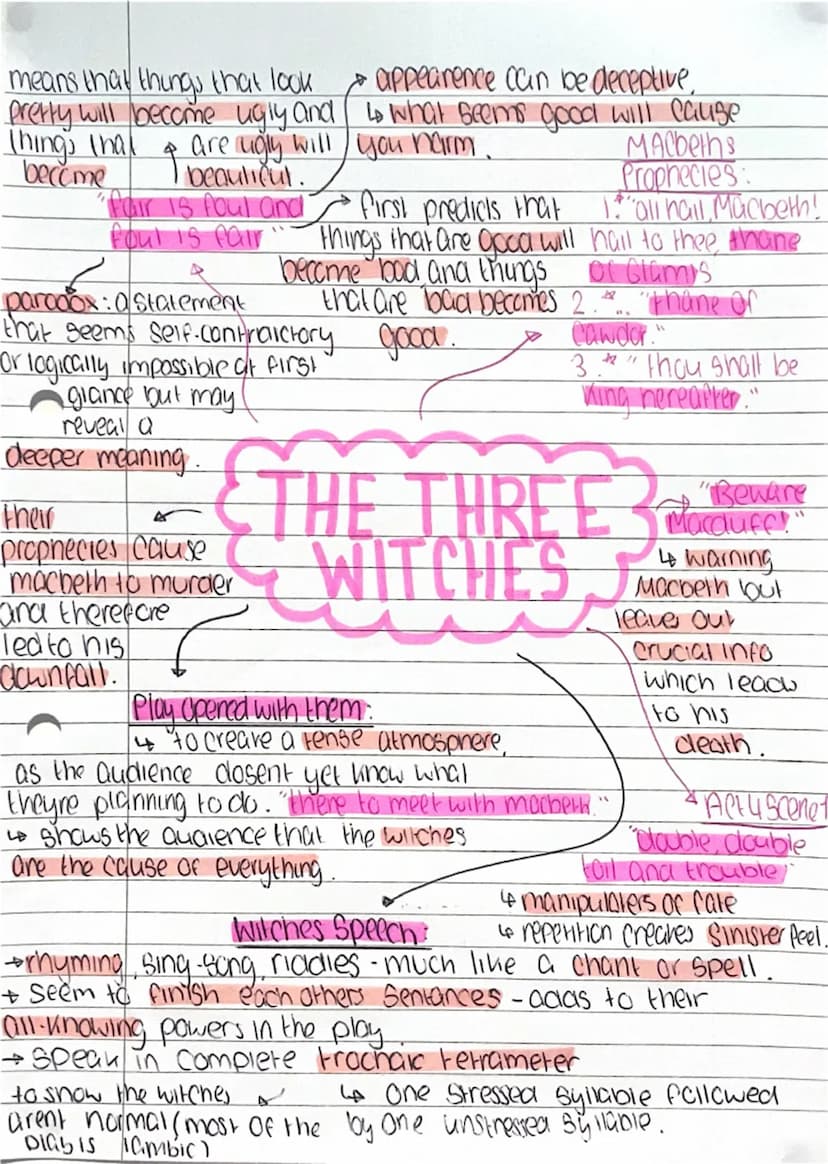 means that things that look
pretty will become ugly and
things that are ugly will
become beautiful.
appearence can be deceptive,
↳ what seems good will cause
you harm.
"fair is foul and
foul is fair"
first predicts that
things that are good will
become bad and things
that are bad becomes
good.
MACbeths
Prophecies:
1. "all hail, Macbeth!
hail to thee, thane
of Glamis
2. " .. "thane of
Cawdor."
3. " "thou shall be
King hereafter."
paradox: a statement
that seems self-contraictory
or logically impossible at first
glance but may
reveal a
deeper meaning.
THE THREE
WITCHES
their
prophecies cause
macbeth to murder
and therefore
led to his
downfall.
"Beware
Macduff!"
↳ warning
Macbeth but
leave out
crucial info
which leads
to his
death.
Play opened with them:
↳ to create a tense atmosphere,
as the audience doesent yet know what
theyre planning to do. "there to meet with macbeth."
↳ shows the audience that the witches
are the cause of everything.
Act 4 Scene 1
"double, double
toil and trouble"
↳ manipulaters of fate
↳ repetition creates sinister feel.
Witches Speech:
→ rhyming, sing-song, riddles - much like a chant or spell.
+ seem to finish each others sentances - adds to their
all-knowing powers in the play.
→ speak in complete trochaic tetrameter
to show the witches
arent normal (most of the
play is iambic)
↳ One stressed syllable followed
by one unstressed syllable.